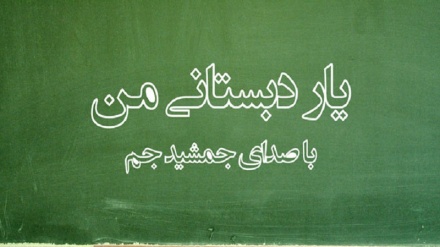 یار دبستانی من
با صدای جمشید جم